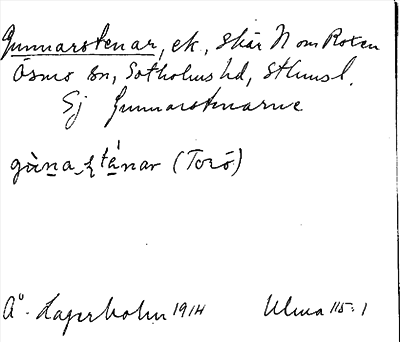 Gunnarstenar, ek., skär N om Roten
Ösmo sn, Sotholms hd, Sthms l.
Ej Gunnarstenarne
gùna ʂtánar (Torö)
Å. Lagerholm 1914 Ulma 115:1